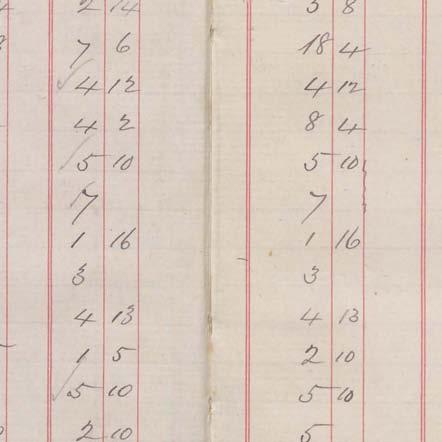 2 14 3 8
7 6 18 4
4 12 4 12
4 2 8 4
5 10 5 10
7 7
1 16 1 16
3 3
4 13 4 13
1 5 2 10
5 10 5 10
2 10 5